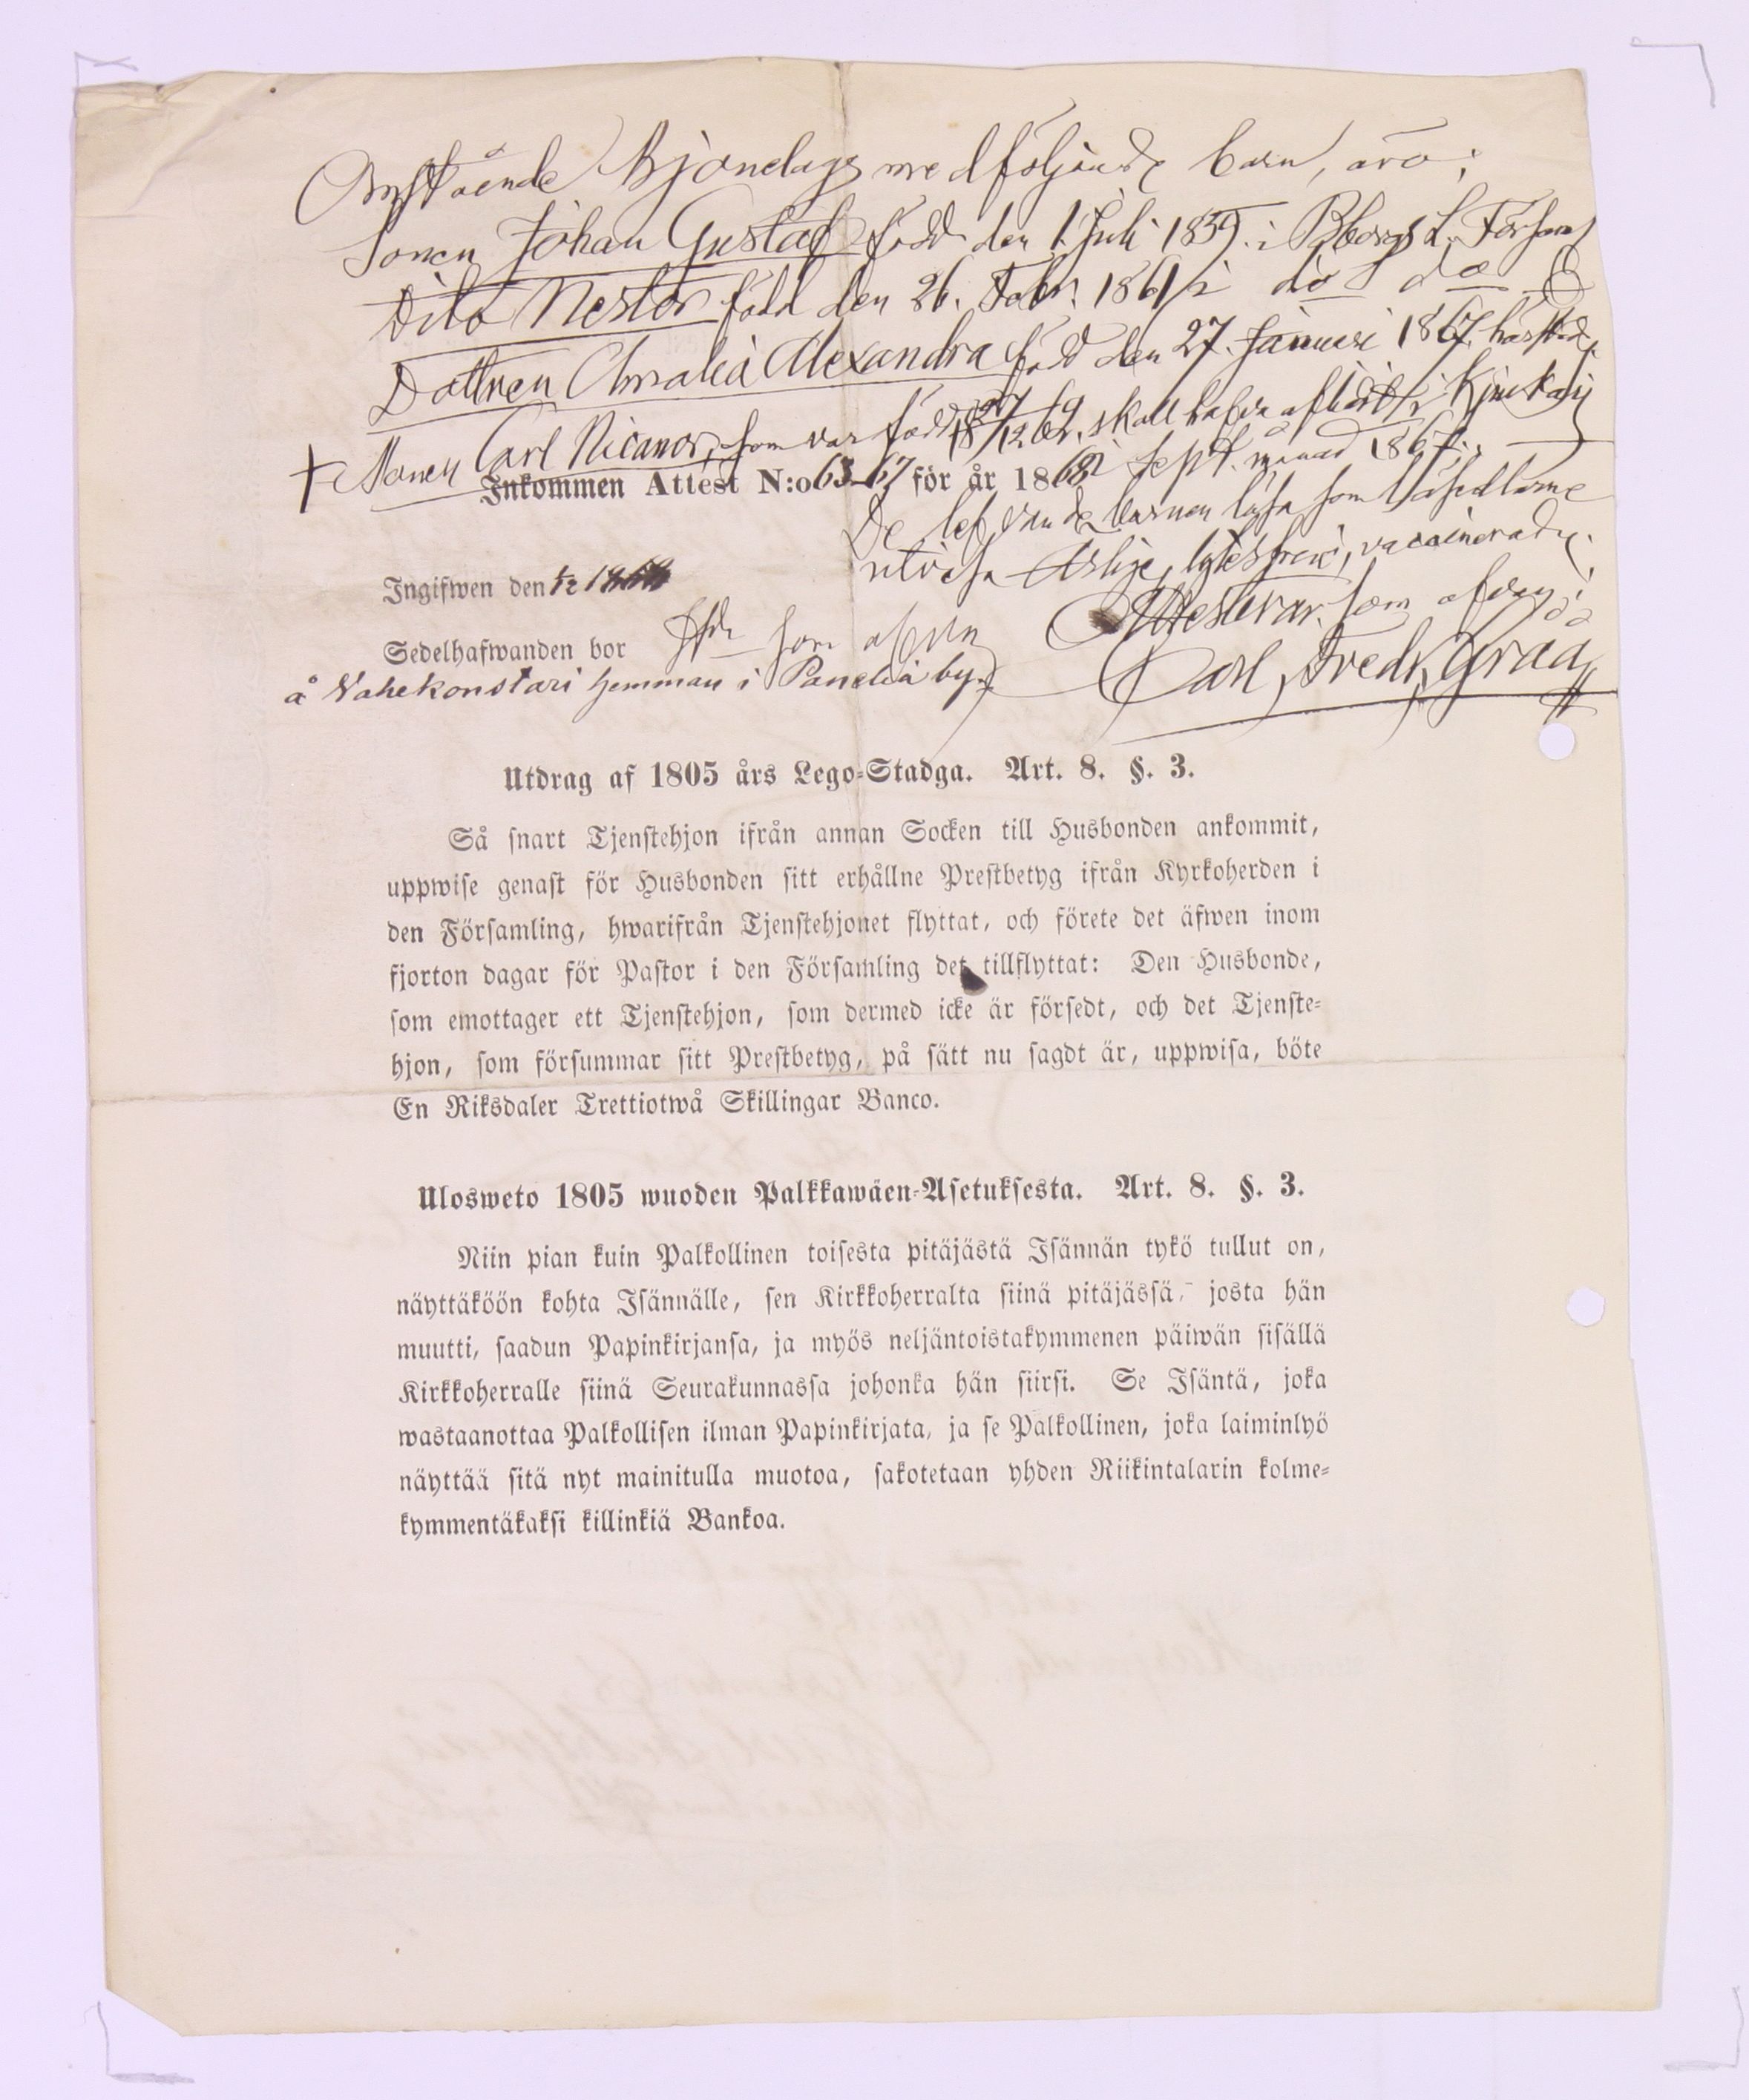 Omstående Bjondags medföljande barn, äro:
Sonen Johan Gustaf född den 1. Juli 1859. i Bborgs L. Förs
Dito Nestor född den 26. Febr. 1861 i do do
Dottren Amalia Alexandra född den 27. Januari 1867. härstäd
† Sonen Carl Nicanor, som var född 18 27/12 62, skall hafva aflidit i Kjukais
Inkommen Attest N:o 63-67 för år 1868 i Sept. månad 1867.
De lefvande barnen läsa som läsedlarne
utvisa lytesfrei, vaccinerade.
Ingifwen den 1/12 18
Attesterar som ofvan
Sedelhafwanden bor som ofvan
Carl Fredr. Graa
å Vahekonstari hemman i Panelia by.
Utdrag af 1805 års Lego-Stadga. Art. 8. §. 3.
Så snart Tjenstehjon ifrån annan Socken till Husbonden ankommit,
uppwise genast för Husbonden sitt erhållne Prestbetyg ifrån Kyrkoherden i
den Församling, hwarifrån Tjenstehjonet flyttat, och förete det äfwen inom
fjorton dagar för Pastor i den Församling det tillflyttat: Den Husbonde,
som emottager ett Tjenstehjon, som dermed icke är försedt, och det Tjenste-
hjon, som försummar sitt Prestbetyg, på sätt nu sagdt är, uppwisa, böte
En Riksdaler Trettiotwå Skillingar Banco.
Ulosweto 1805 wuoden Palkkawäen-Asetuksesta. Art. 8. §. 3.
Niin pian kuin Palkollinen toisesta pitäjästä Isännän tykö tullut on,
näyttäköön kohta Isännälle, sen Kirkkoherralta siinä pitäjässä, josta hän
muutti, saadun Papinkirjansa, ja myös neljäntoistakymmenen päiwän sisällä
Kirkkoherralle siinä Seurakunnassa johonka hän siirsi. Se Isäntä, joka
wastaanottaa Palkollisen ilman Papinkirjata, ja se Palkollinen, joka laiminlyö
näyttää sitä nyt mainitulla muotoa, sakotetaan yhden Riikintalarin kolme-
kymmentäkaksi killinkiä Bankoa.